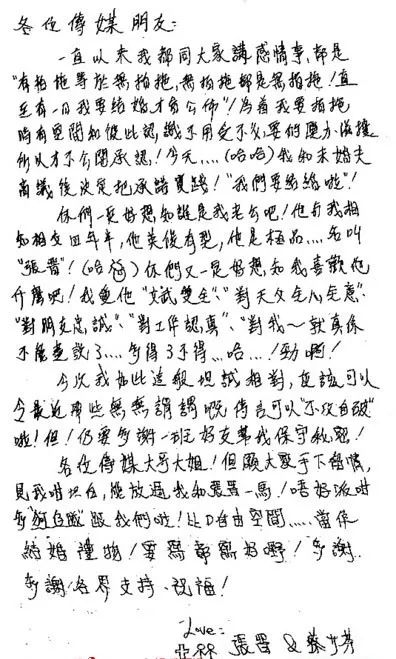 各位傳媒朋友：
一直以來我都同大家講感情事，都是
"有拍拖等於無拍拖，無拍拖都是無拍拖！直
至有一日我要結婚才會公佈"！為着我要拍拖
時有空間和彼此認識，不用受不必要的壓力，
所以才不公開承認！今天....(哈哈)我和未婚夫
商議後決定把承諾實踐！"我們要結婚啦"！
你們一定好想知誰是我老公吧！他與我相
知相交四年半，他英俊有型，他是極品....名叫
"張晋"！(哈)你們又一定好想知我喜歡他
什麼吧！我愛他"文武雙全"、"對天父全心全意"、
"對朋友忠誠"、"對工作認真"、"對我～就真係
不能盡說了....多得了不得...哈...！勁啊！
今次我作出這般坦誠相對，應該可以
令最近那些無無謂謂嘅傳言可以"不攻自破"
啦！但！仍要多謝一班好友幫我保守秘密！
各位傳媒大哥大姐！但願大家手下留情，
見我咁坦白，能放過我和張晋一馬！唔好派咁
多"狗仔隊"跟我們啦！比D自由空間.....當係
結婚禮物！要寫都寫好嘢！多謝
多謝各界支持、祝福！
Love：
張晋 & 蔡少芬